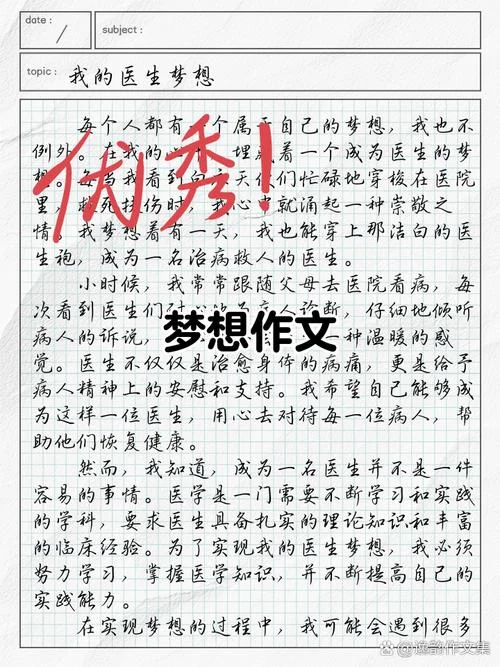 date :
subject :
topic :
我的医生梦想
每个人都有 个属 自己的梦想,我也不
例外。在我的 埋 着一个成为医生的梦
想。每当我看到白 天使们忙碌地穿梭在医院
里, 死扶伤时,我心 就涌起一种崇敬之
情。我梦想着有一天,我也能穿上那洁白的医
生袍,成为一名治病救人的医生。
优秀!
小时候,我常常跟随父母去医院看病,每
次看到医生们 病人诊断,仔细地倾听
病人的诉说, 种温暖的感
梦想作文
觉。医生不仅仅是治愈身体的病痛,更是给予
病人精神上的安慰和支持。我希望自己能够成
为这样一位医生,用心去对待每一位病人,帮
助他们恢复健康。
然而,我知道,成为一名医生并不是一件
容易的事情。医学是一门需要不断学习和实践
的学科,要求医生具备扎实的理论知识和丰富
的临床经验。为了实现我的医生梦想,我必须
努力学习,掌握医学知识,并不断提高自己的
实践能力。
在实现梦想的过程中,我可能会遇到很多